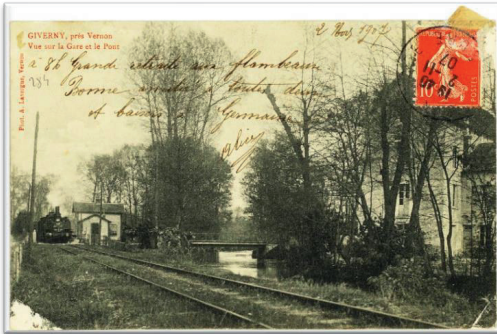 GIVERNY, près Vernon
Vue sur la Gare et le Pont
2 1907
à 8h Grande retraite aux flambeaux
Bonne amitié à toutes deux
et baisers Germaine
284
Phot. A. Lavergne, Vernon
10